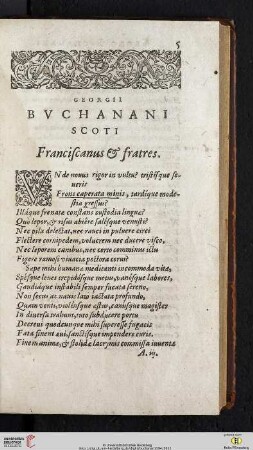 5
GEORGII
BVCHANANI
SCOTI
Franciscanus & fratres.
VNde nouus rigor in vultu? tristísque seueris
Frons caperata minis, tardíque modestia gressus?
Illáque frenatæ constans custodia linguæ?
Quò lepor, & risus abiêre salésque venusti?
Nec pila delectat, nec rauci in puluere circi
Flectere cornipedem, volucrem nec ducere visco,
Nec leporem canibus, nec certo comminus ictu
Figere ramosi viuacia pectora cerui?
Sæpe mihi humanæ meditanti incommoda vitæ,
Spésque leues trepidósque metus, vanósque labores,
Gaudiáque instabili semper fucata sereno,
Non secus ac nauis lato iactata profundo,
Quam venti, vastíque æstus, canúsque magister
In diuersa trahunt, tuto subducere portu
Decreui quodcunque mihi superesse fugacis
Fata sinent æui, sanctísque impendere curis
Fine manimæ, & stolidæ lacrymis commissa iuuentæ
A. iij.